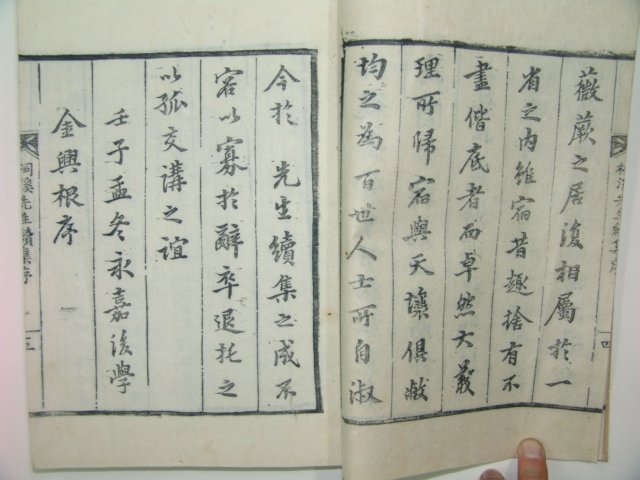 薇蕨之居復相屬於一
省之內雖宿昔趣捨有不
盡偕底者而卓然大義
理所歸宿與天壤俱敝
均之為百世人士所自淑
四
今於 先生續集之成不
容以寡於辭卒退托之
以孤交講之誼
壬子孟冬永嘉後學
金興根序
桐溪先生續集序
五